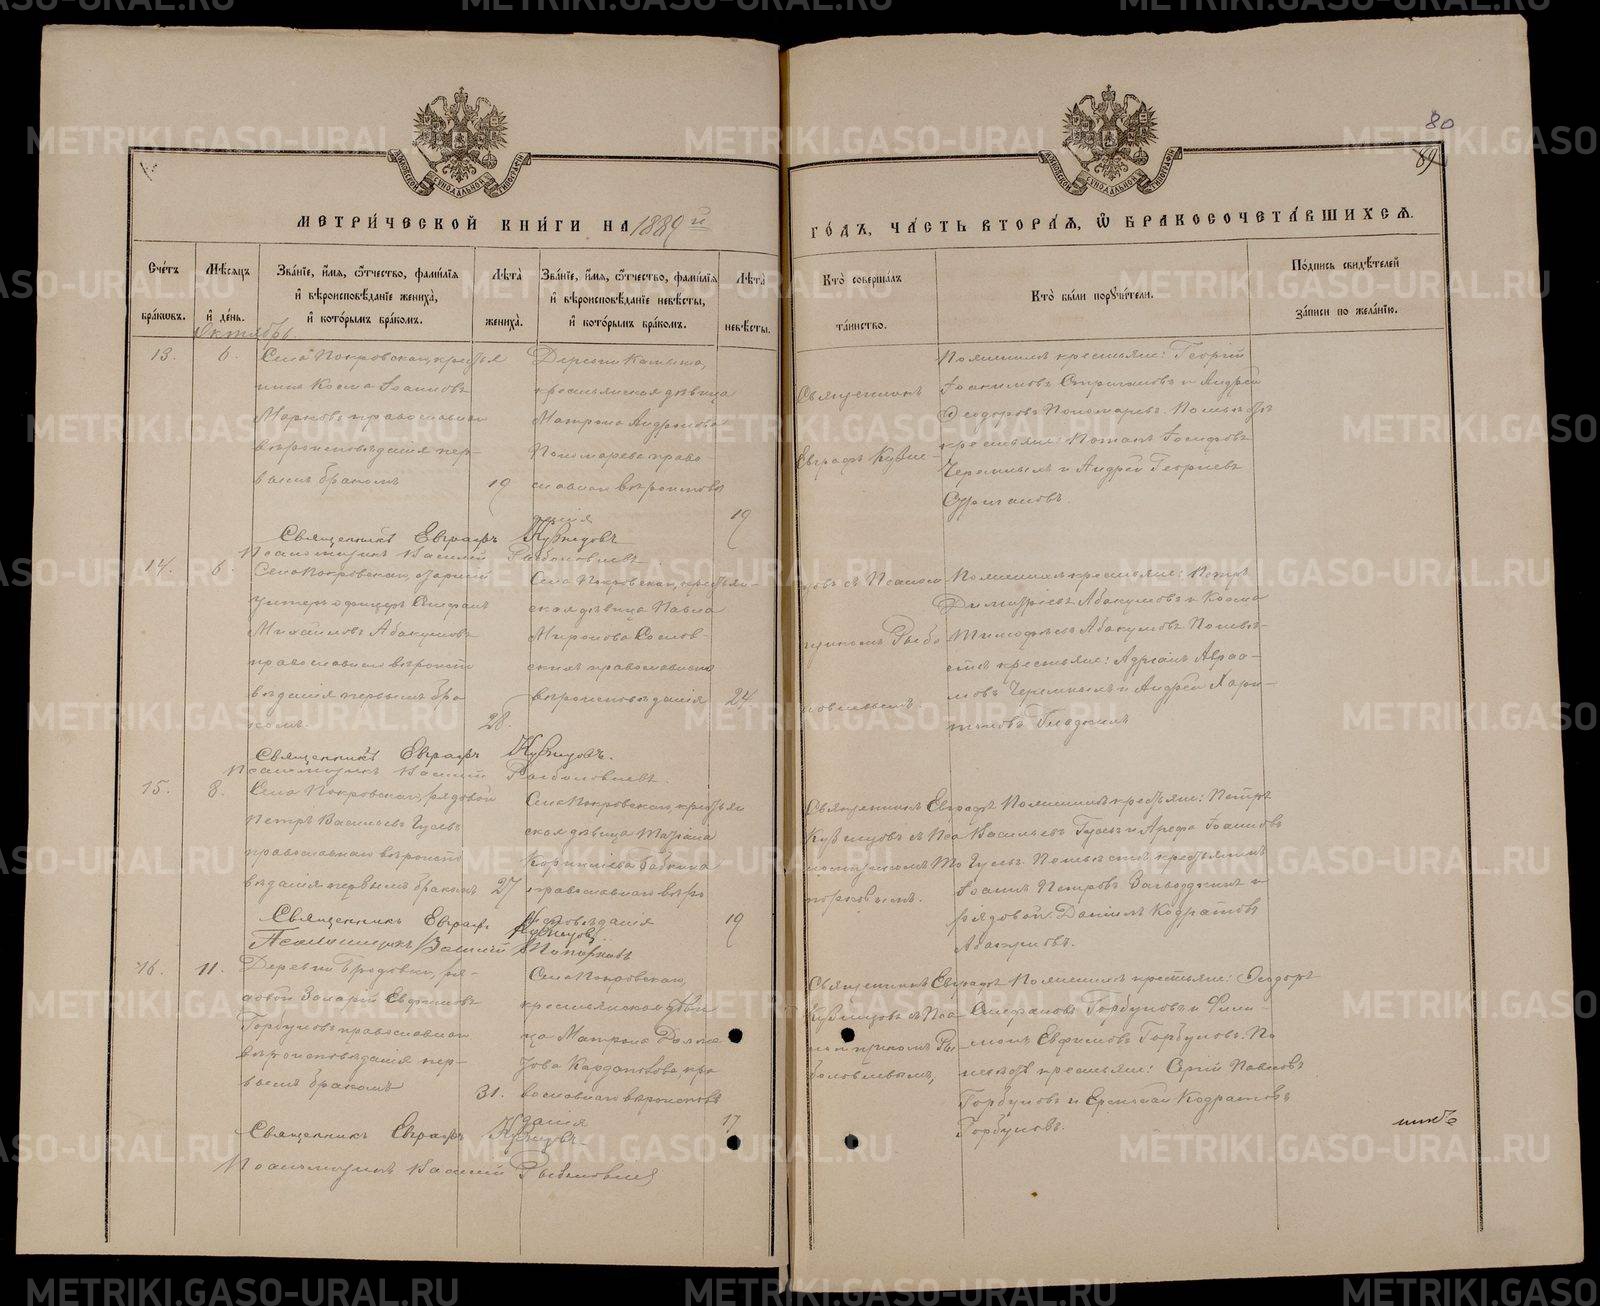 80
89
МЕТРИ́ЧЕСКОЙ КНИ́ГИ НА 1889 й
ГО́ДЪ, ЧА́СТЬ ВТОРА́Я, Ѽ БРАКОСОЧЕТА́ВШИХСЯ.
Сче́тъ бра́кωвъ.
Мѣ́сяцъ и҆ де́нь.
Зва́нїе, и҆́мя, ѻ҆́тчество, фами́лїя и҆ вѣроисповѣ́данїе жениха̀, и҆ кото́рымъ бра́комъ.
Лѣта̀ жениха̀.
Зва́нїе, и҆́мя, ѻ҆́тчество, фами́лїя и҆ вѣроисповѣ́данїе невѣ́сты, и҆ кото́рымъ бра́комъ.
Лѣта̀ невѣ́сты.
Кто̀ соверша́лъ та́инство.
Кто̀ бы́ли порꙋчи́тели.
По́дпись свидѣ́телей за́писи по жела́нїю.
Октябрь
13.
6.
Села Покровскаго, кресть
янинъ Косма Іоанновъ
Марковъ православнаго
вѣроисповѣданія пер-
вымъ бракомъ
19
Деревни
крестьянская дѣвица
Матрона Андронова
Пономарева право-
славнаго вѣроисповѣ
данія
19
Священникъ
Евграфъ Кузне-
По женихѣ крестьяне: Георгій
Іоакимовъ Стригановъ и Андрей
Ѳеодоровъ Пономаревъ. По невѣстѣ
крестьяне: Іосифовъ
Черемныхъ и Андрей Георгіевъ
Стригановъ.
Священникъ Евграфъ Кузнецовъ
Псаломщикъ Василій Рыболовлевъ
14.
6.
Села Покровскаго,
унтеръ офицеръ Стефанъ
Михайловъ Абакумовъ
православнаго вѣроиспо
вѣданія первымъ бра
комъ
28.
Села Покровскаго, крестьян-
ская дѣвица Павла
Миронова
православнаго
вѣроисповѣданія
24
цовъ съ Псалом
щикомъ Рыбо
ловлевымъ.
По женихѣ крестьяне: Петръ
Димитріевъ Абакумовъ и Косма
Тимофѣевъ Абакумовъ. По невѣ-
стѣ крестьяне: Адріанъ Авраа-
мовъ Черемныхъ и Андрей Хари-
тоновъ Гладкихъ
Священникъ Евграфъ Кузнецовъ.
Псаломщикъ Василій Рыболовлевъ.
15.
8.
Села Покровскаго, рядовой
Петръ Васильевъ Гусевъ
православнаго вѣроиспо
вѣданія первымъ бракомъ
27
Села Покровскаго, крестьян
ская дѣвица Татіана
Корнилева Бабкина
православнаго вѣро
исповѣданія
19
Священникъ Евграфъ
Кузнецовъ съ Пса
ломщикомъ То
порковымъ.
По женихѣ крестьяне: Петръ
Васильевъ Гусевъ и Арефа Іоанновъ
Гусевъ. По невѣстѣ крестьянинъ
Іоаннъ Петровъ и
рядовой Даніилъ Кодратовъ
Священникъ Евграфъ Кузнецовъ
Псаломщикъ Василій Топорковъ
16.
11.
Деревни Бродовки, ря-
довой Захарій Евфимовъ
Горбуновъ православнаго
вѣроисповѣданія пер-
вымъ бракомъ
31.
Села Покровскаго,
крестьянская дѣви
ца Матрона
пра
вославнаго вѣроисповѣ
данія
17
Священникъ Евграфъ
Кузнецовъ съ Пса
ломщикомъ Ры-
боловлевымъ,
По женихѣ крестьяне: Ѳеодоръ
Стефановъ Горбуновъ и Фили-
монъ Евфимовъ Горбуновъ. По
невѣстѣ крестьяне: Сергій Павловъ
Горбуновъ и Еремѣй Кодратовъ
Горбуновъ.
Священникъ Евграфъ Кузнецовъ
Псаломщикъ Василій Рыболовлевъ
METRIKI.GASO-URAL.RU